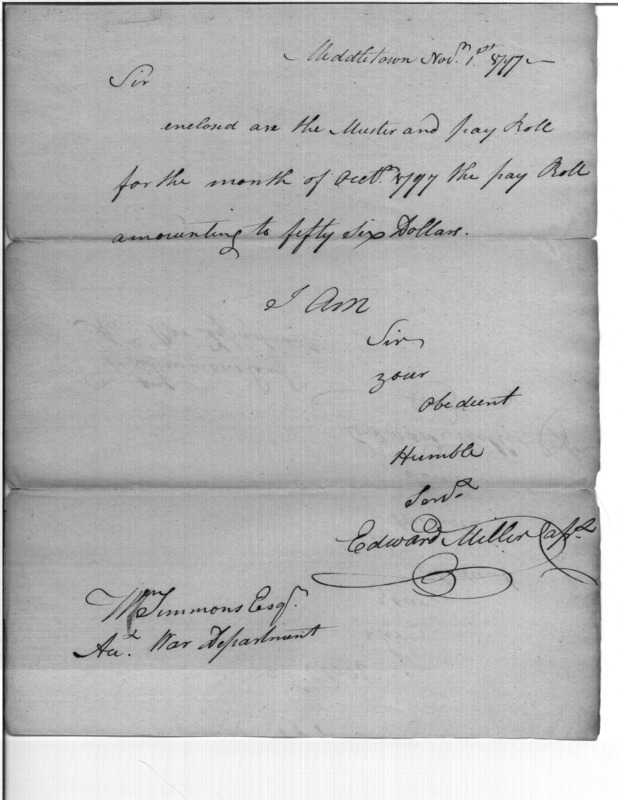 Middletown Novr. 1st 1797
Sir
enclosed are the Muster and pay Roll
for the month of Octr. 1797 the pay Roll
amounting to fifty six Dollars.
I Am
Sir
your
Obedient
Humble
Servt.
Edward Miller Capt.
Wm Simmons Esqr.
Act. War Department